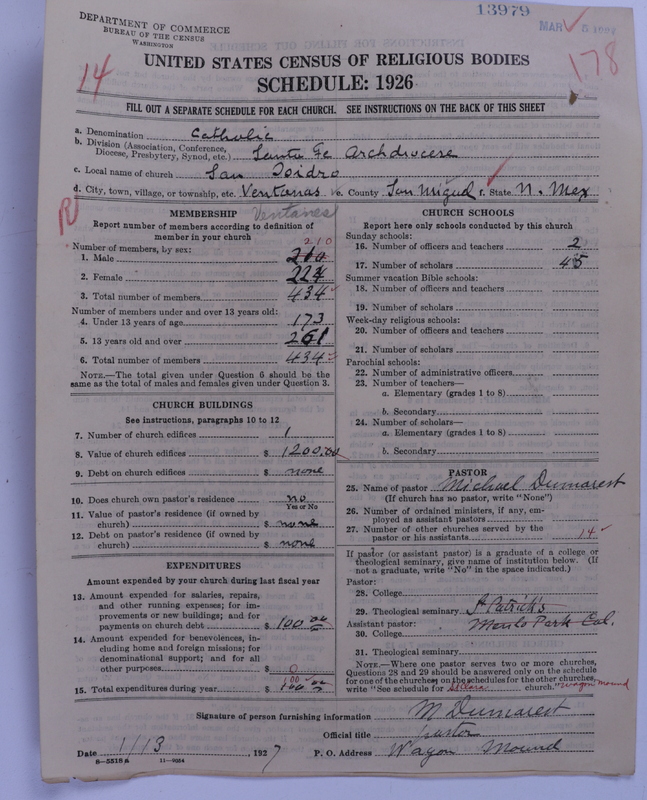 13979
DEPARTMENT OF COMMERCE
BUREAU OF THE CENSUS
WASHINGTON
MAR 5
14
178
UNITED STATES CENSUS OF RELIGIOUS BODIES
SCHEDULE: 1926
FILL OUT A SEPARATE SCHEDULE FOR EACH CHURCH. SEE INSTRUCTIONS ON THE BACK OF THIS SHEET
a. Denomination Catholic
b. Division (Association, Conference,
Diocese, Presbytery, Synod, etc.) Santa Fe Archdiocese
c. Local name of church San Isidro
d. City, town, village, or township, etc. Ventanas e. County San Miguel f. State N. Mex
R
Ventanes
MEMBERSHIP
Report number of members according to definition of
member in your church
Number of members, by sex:
210
1. Male 210
2. Female 224
3. Total number of members 434
Number of members under and over 13 years old:
4. Under 13 years of age 173
5. 13 years old and over 261
6. Total number of members 434
NOTE.—The total given under Question 6 should be the
same as the total of males and females given under Question 3.
CHURCH BUILDINGS
See instructions, paragraphs 10 to 12
7. Number of church edifices 1
8. Value of church edifices $ 1200.00
9. Debt on church edifices $ none
10. Does church own pastor's residence no
Yes or No
11. Value of pastor's residence (if owned by
church) $ none
12. Debt on pastor's residence (if owned by
church) $ none
EXPENDITURES
Amount expended by your church during last fiscal year
13. Amount expended for salaries, repairs,
and other running expenses; for im-
provements or new buildings; and for
payments on church debt $ 100.00
14. Amount expended for benevolences, in-
cluding home and foreign missions; for
denominational support; and for all
other purposes $ 0
100
15. Total expenditures during year $ 100.00
CHURCH SCHOOLS
Report here only schools conducted by this church
Sunday schools:
16. Number of officers and teachers 2
17. Number of scholars 45
Summer vacation Bible schools:
18. Number of officers and teachers
19. Number of scholars
Week-day religious schools:
20. Number of officers and teachers
21. Number of scholars
Parochial schools:
22. Number of administrative officers
23. Number of teachers—
a. Elementary (grades 1 to 8)
b. Secondary
24. Number of scholars—
a. Elementary (grades 1 to 8)
b. Secondary
PASTOR
25. Name of pastor Michael Dumarest
(If church has no pastor, write "None")
26. Number of ordained ministers, if any, em-
ployed as assistant pastors
27. Number of other churches served by the
pastor or his assistants 14
If pastor (or assistant pastor) is a graduate of a college or
theological seminary, give name of institution below. (If
not a graduate, write "No" in the space indicated.)
Pastor:
28. College
29. Theological seminary St Patrick's
Assistant pastor: Menlo Park Cal.
30. College
31. Theological seminary
NOTE.—Where one pastor serves two or more churches,
Questions 28 and 29 should be answered only on the schedule
for one of the churches; on the schedules for the other churches,
write "See schedule for St Clara church." Wagon Mound
Signature of person furnishing information M Dumarest
Official title pastor
Date 1/13 1927 P. O. Address Wagon Mound
8—5518a 11—9024